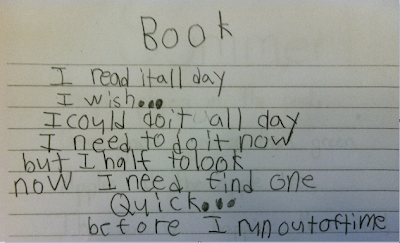 Book
I read it all day
I wish...
I could do it all day
I need to do it now
but I half to look
now I need find one
Quick...
before I run out of time